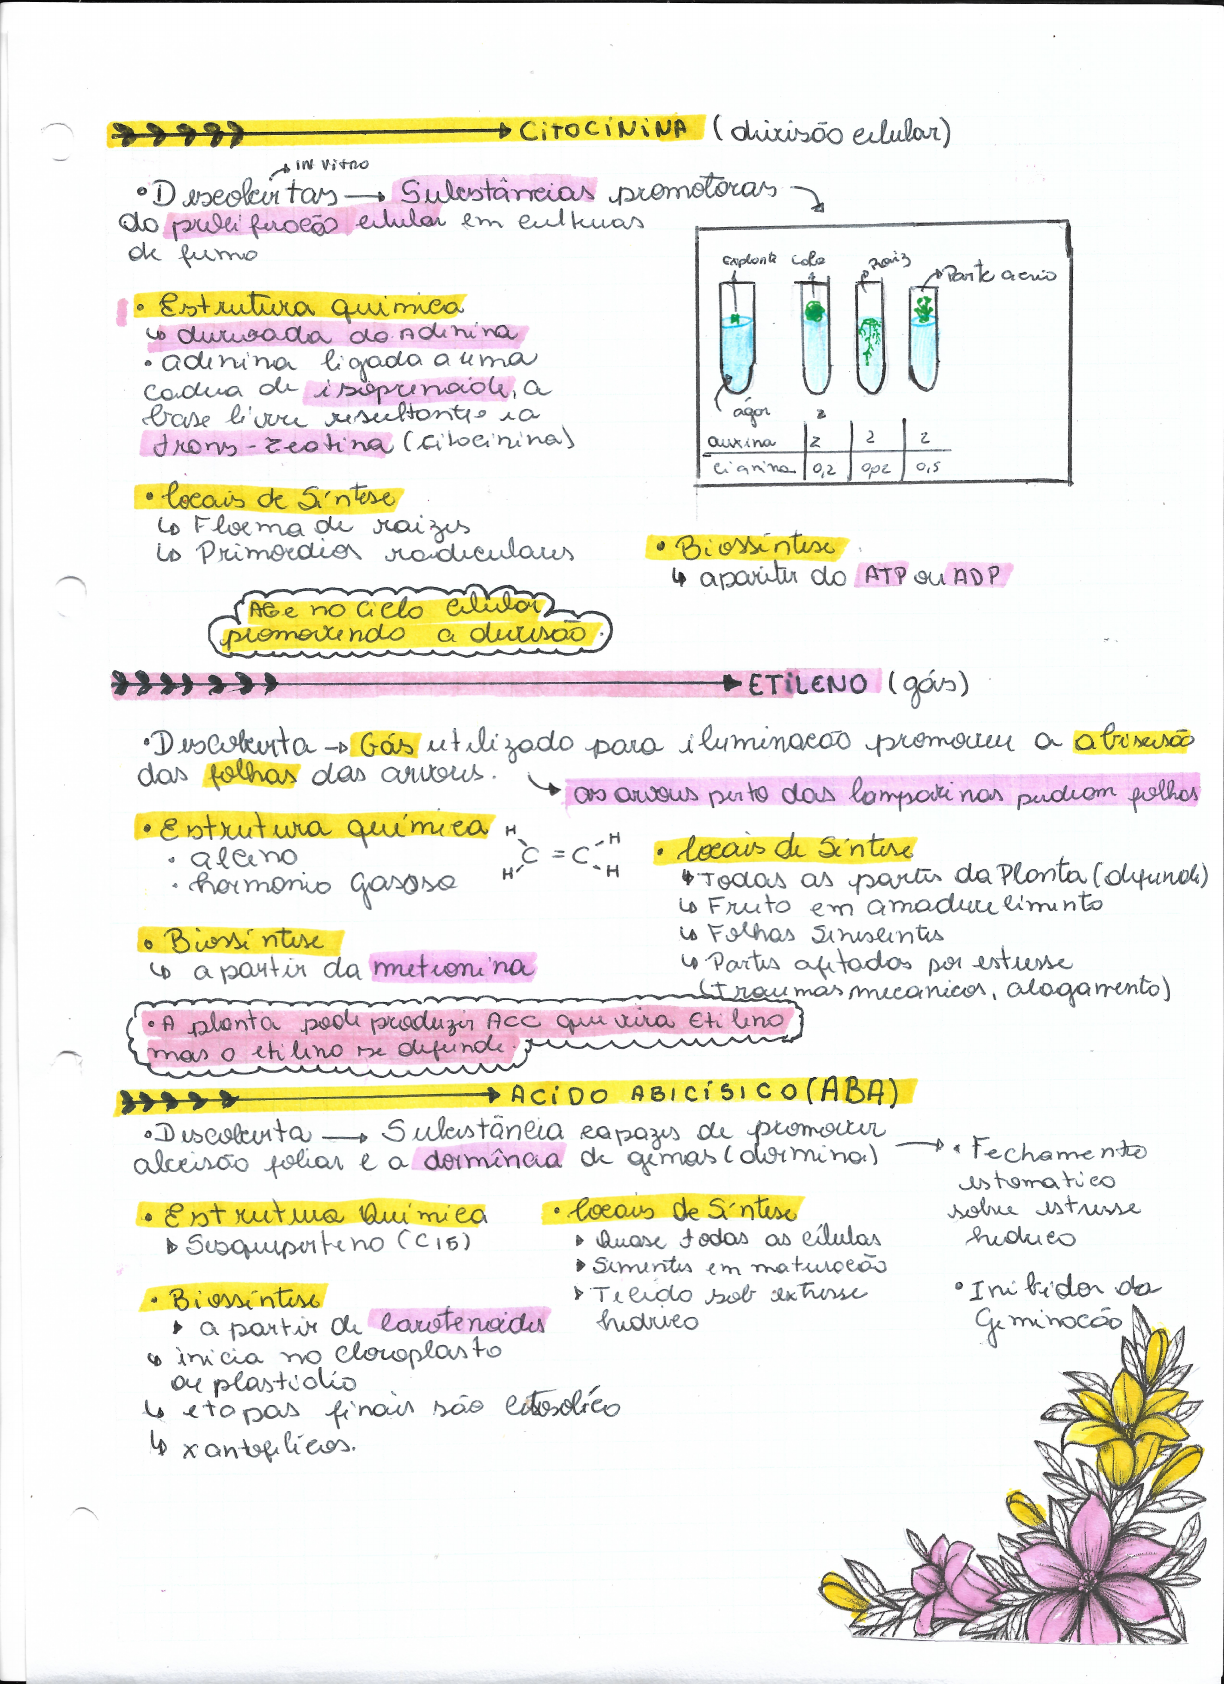 CITOCININA (divisão celular)
in vitro
• Descobertas → Substâncias promotoras
do proliferação celular em culturas
de fumo
explante calo raiz Parte aerea
ágar
auxina 2 2 2
cianina 0,2 0,02 0,5
• Estrutura quimica
↳ derivada do Adenina
• adenina ligada a uma
cadeia de isoprenoide, a
base livre resultante é a
trans-zeatina (citocinina)
• locais de Síntese
↳ Floema de raizes
↳ Primordios radiculares
• Biossíntese
↳ apartir do ATP ou ADP
AGe no ciclo celular
promovendo a divisão.
ETILENO (gás)
• Descoberta → Gás utilizado para iluminacao promoveu a abscisão
das folhas das arvores.
as arvores perto das lamparinas perdiam folhas
• Estrutura química
• alceno
• hormonio gasoso
H H
C = C
H H
• locais de Síntese
↳ Todas as partes da Planta (difunde)
↳ Fruto em amadurecimento
↳ Folhas Senescentes
↳ Partes afetadas por estresse
(traumas mecanicos, alagamento)
• Biossíntese
↳ a partir da metionina
• A planta pode produzir ACC que vira Etileno
mas o etileno se difunde.
ACIDO ABICÍSICO (ABA)
• Descoberta → Substância capazes de promover
abcisão foliar e a dormência de gemas (dormina)
• Fechamento
estomatico
sobre estresse
hidrico
• Inibidor da
Geminacão
• Estrutura Química
Sesquiperteno (C15)
• locais de Síntese
Quase todas as células
Sementes em maturacão
Tecido sob extresse
hidrico
• Biossíntese
a partir de carotenoides
↳ inicia no cloroplasto
ou plastidio
↳ etapas finais são citosolíco
↳ xantofilicos.